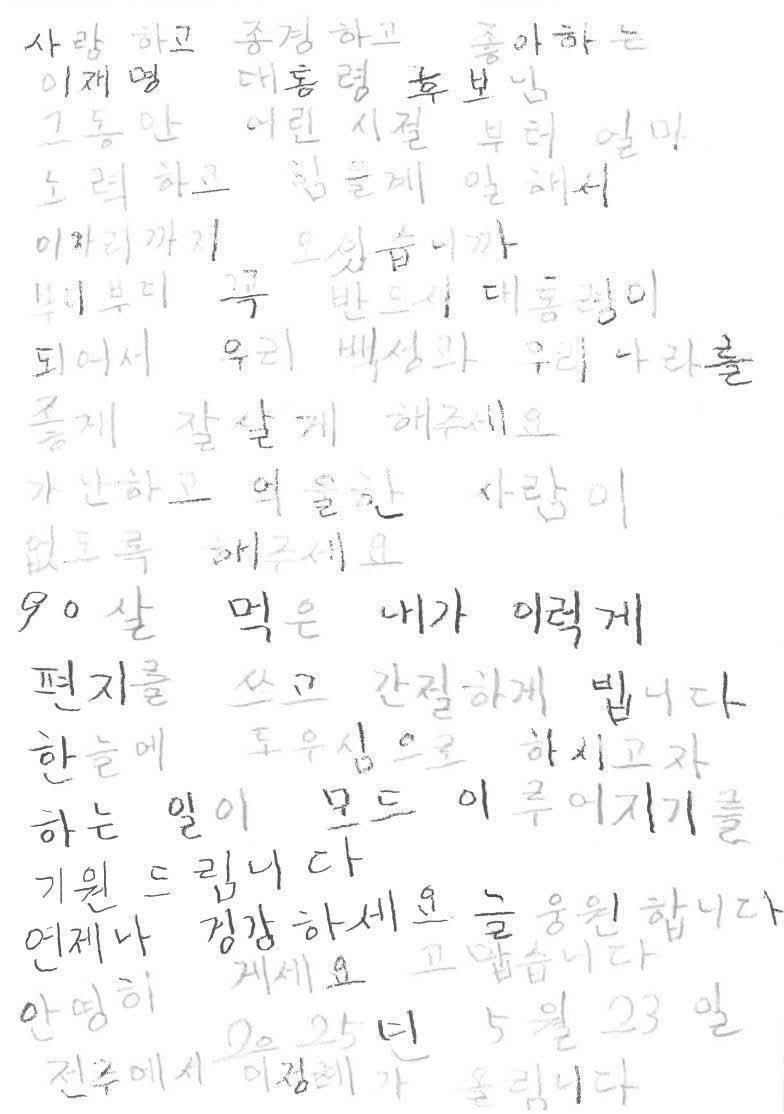 사랑 하고 종경하고 좋아하는
이재명 대통령 후보님
그동안 어린 시절 부터 얼마
노력하고 힘들게 일해서
이자리까지 오셨습니까
부디부디 꼭 반드시 대통령이
되어서 우리 백성과 우리나라를
좋게 잘살게 해주세요
가난하고 억울한 사람이
없도록 해주세요
90살 먹은 내가 이렇게
편지를 쓰고 간절하게 빕니다
한늘에 도우심으로 하시고자
하는 일이 모드 이루어지기를
기원드립니다
언제나 겅강하세요 늘 웅원합니다
안영히 게세요 고맙습니다
2025년 5월 23일
전주에서 이정례가 올림니다